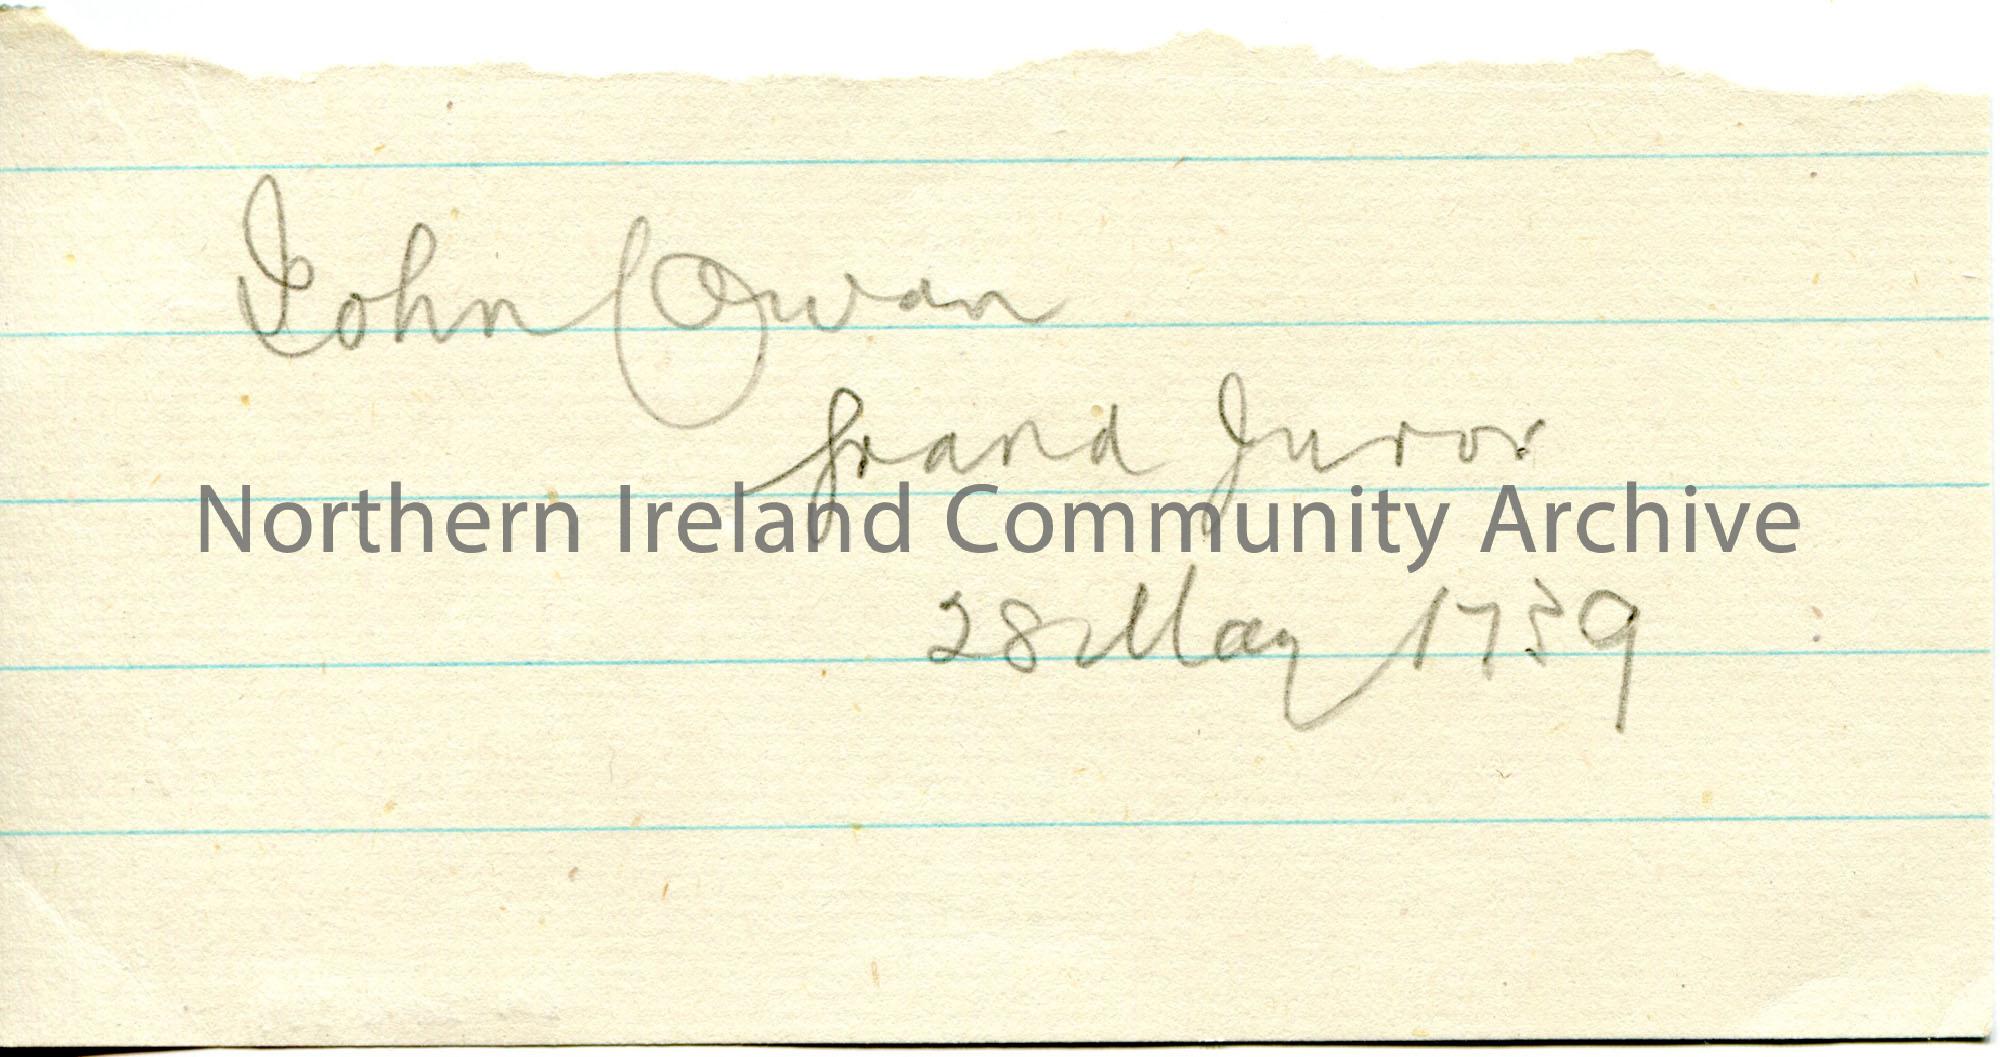 John Owan
Grand Juror
Northern Ireland Community Archive
28 May 1739